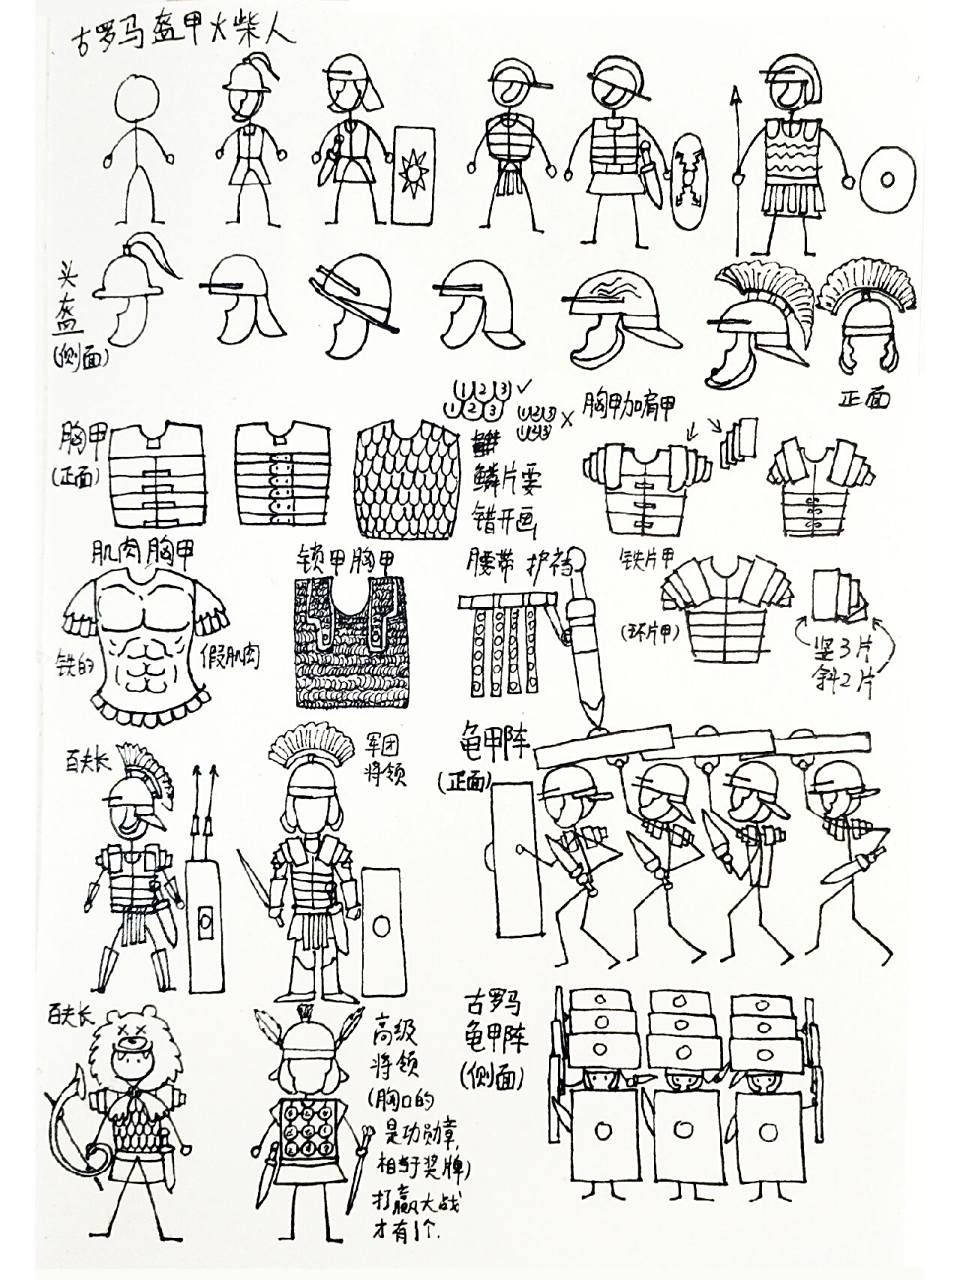 古罗马盔甲火柴人
头
盔
(侧面)
正面
1 2 3 ✓
1 2 3
1 2 3 ×
1 2 3
胸甲加肩甲
胸甲
(正面)
鳞片要
错开画
肌肉胸甲
铁的
假肌肉
锁甲胸甲
腰带 护裆
铁片甲
(环片甲)
竖3片
斜2片
百夫长
军团
将领
龟甲阵
(正面)
百夫长
高级
将领
(胸口的
是功勋章,
相当于奖牌)
打赢大战
才有1个.
古罗马
龟甲阵
(侧面)